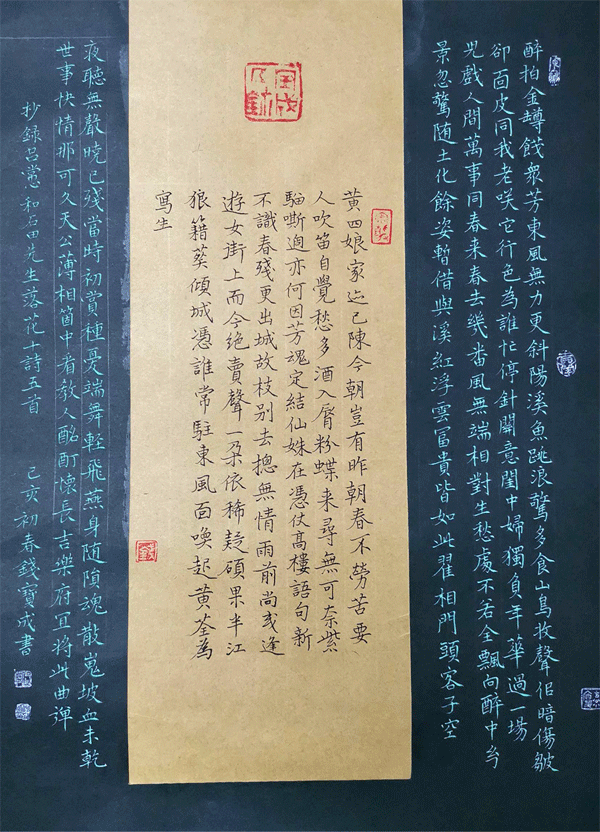 醉拍金罇餞衆芳東風無力更斜陽溪魚跳浪驚多食山鳥收聲佀暗傷皱
卻面皮同我老咲它行色為誰忙停針關意閨中婦獨負年華過一場
兒戲人間萬事同春来春去幾番風無端相對生愁處不若全飄向醉中多
景忽驚随土化餘姿暫借與溪紅浮雲冨貴皆如此翟相門頭客子空
黄四娘家迹已陳今朝豈有昨朝春不勞苦要
人吹笛自覺愁多酒入脣粉蝶来尋無可奈紫
騮嘶過亦何因芳魂定結仙姝在憑仗髙樓語句新
不識春殘更出城故枝别去揔無情雨前尚或逢
遊女街上而今绝賣聲一朶依稀疑碩果半江
狼籍葵傾城憑誰常駐東風面喚起黄荃為
寫生
夜聽無聲曉已殘當時初賞種憂端舞輕飛燕身随隕魂散嵬坡血未乾
世事快情那可久天公薄相箇中看教人酩酊懷長吉樂府冝將此曲彈
抄録吕㦂和石田先生落花十詩五首 己亥初春錢寶成書